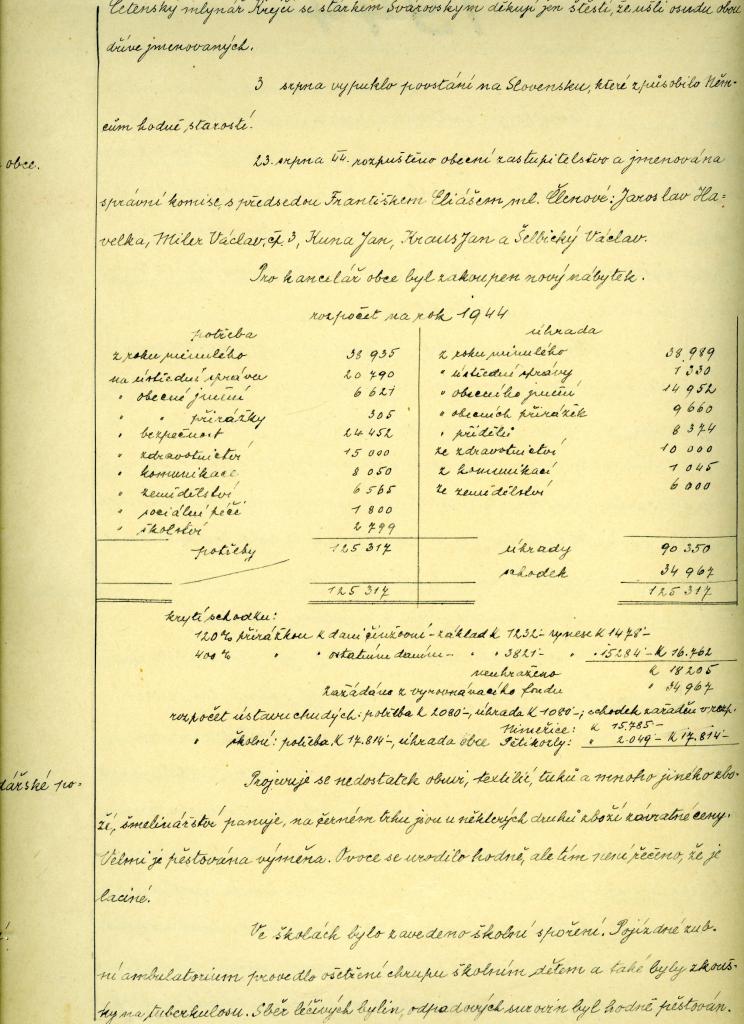 Cetenský mlynář Krejčí se stárkem Švarovským děkují jen štěstí, že ušli osudu obou
dříve jmenovaných.
3 srpna vypuklo povstání na Slovensku, které způsobilo Něm-
cům hodně starostí.
obce.
23. srpna 44. rozpuštěno obecní zastupitelstvo a jmenována
správní komise, s předsedou Františkem Eliášem ml. Členové: Jaroslav Ha-
velka, Miler Václav, čp. 3, Kuna Jan, Kraus Jan a Šelbický Václav.
Pro kancelář obce byl zakoupen nový nábytek.
rozpočet na rok 1944
potřeba úhrada
z roku minulého 38 935 z roku minulého 38 989
na ústřední správu 20 790 " ústřední správy 1 330
" obecné jmění 6 621 " obecního jmění 14 952
" " přirážky 305 " obecních přirážek 9 660
" bezpečnost 24 452 " přídělů 8 374
" zdravotnictví 15 000 ze zdravotnictví 10 000
" komunikace 8 050 z komunikací 1 045
" zemědělství 6 565 ze zemědělství 6 000
" sociální péči 1 800
" školství 2 799
potřeby 125 317 úhrady 90 350
schodek 34 967
125 317 125 317
krytí schodku:
120% přirážkou k dani činžovní – základ K 1232·– vynese K 1478·–
400% " " ostatním daním – " " 3821·– " " 15284·– K 16.762
neuhraženo K 18 205
zažádáno z vyrovnávacího fondu " 34 967
rozpočet ústavu chudých: potřeba K 2080·–, úhrada K 1080·–; schodek zařaděn v rozp.
Niměřice: K 15.785·–
" školní: potřeba K 17.814·–, úhrada obce Pětikozly: " 2.049·– K 17.814·–
dářské po-
Projevuje se nedostatek obuvi, textilií, tuků a mnoho jiného zbo-
ží, šmelinářství panuje, na černém trhu jsou u některých druhů zboží závratné ceny.
Velmi je pěstována výměna. Ovoce se urodilo hodně, ale tím není řečeno, že je
laciné.
Ve školách bylo zavedeno školní spoření. Pojízdné zub-
ní ambulatorium provedlo ošetření chrupu školním dětem a také byly zkouš-
ky na tuberkulosu. Sběr léčivých bylin, odpadových surovin byl hodně pěstován.